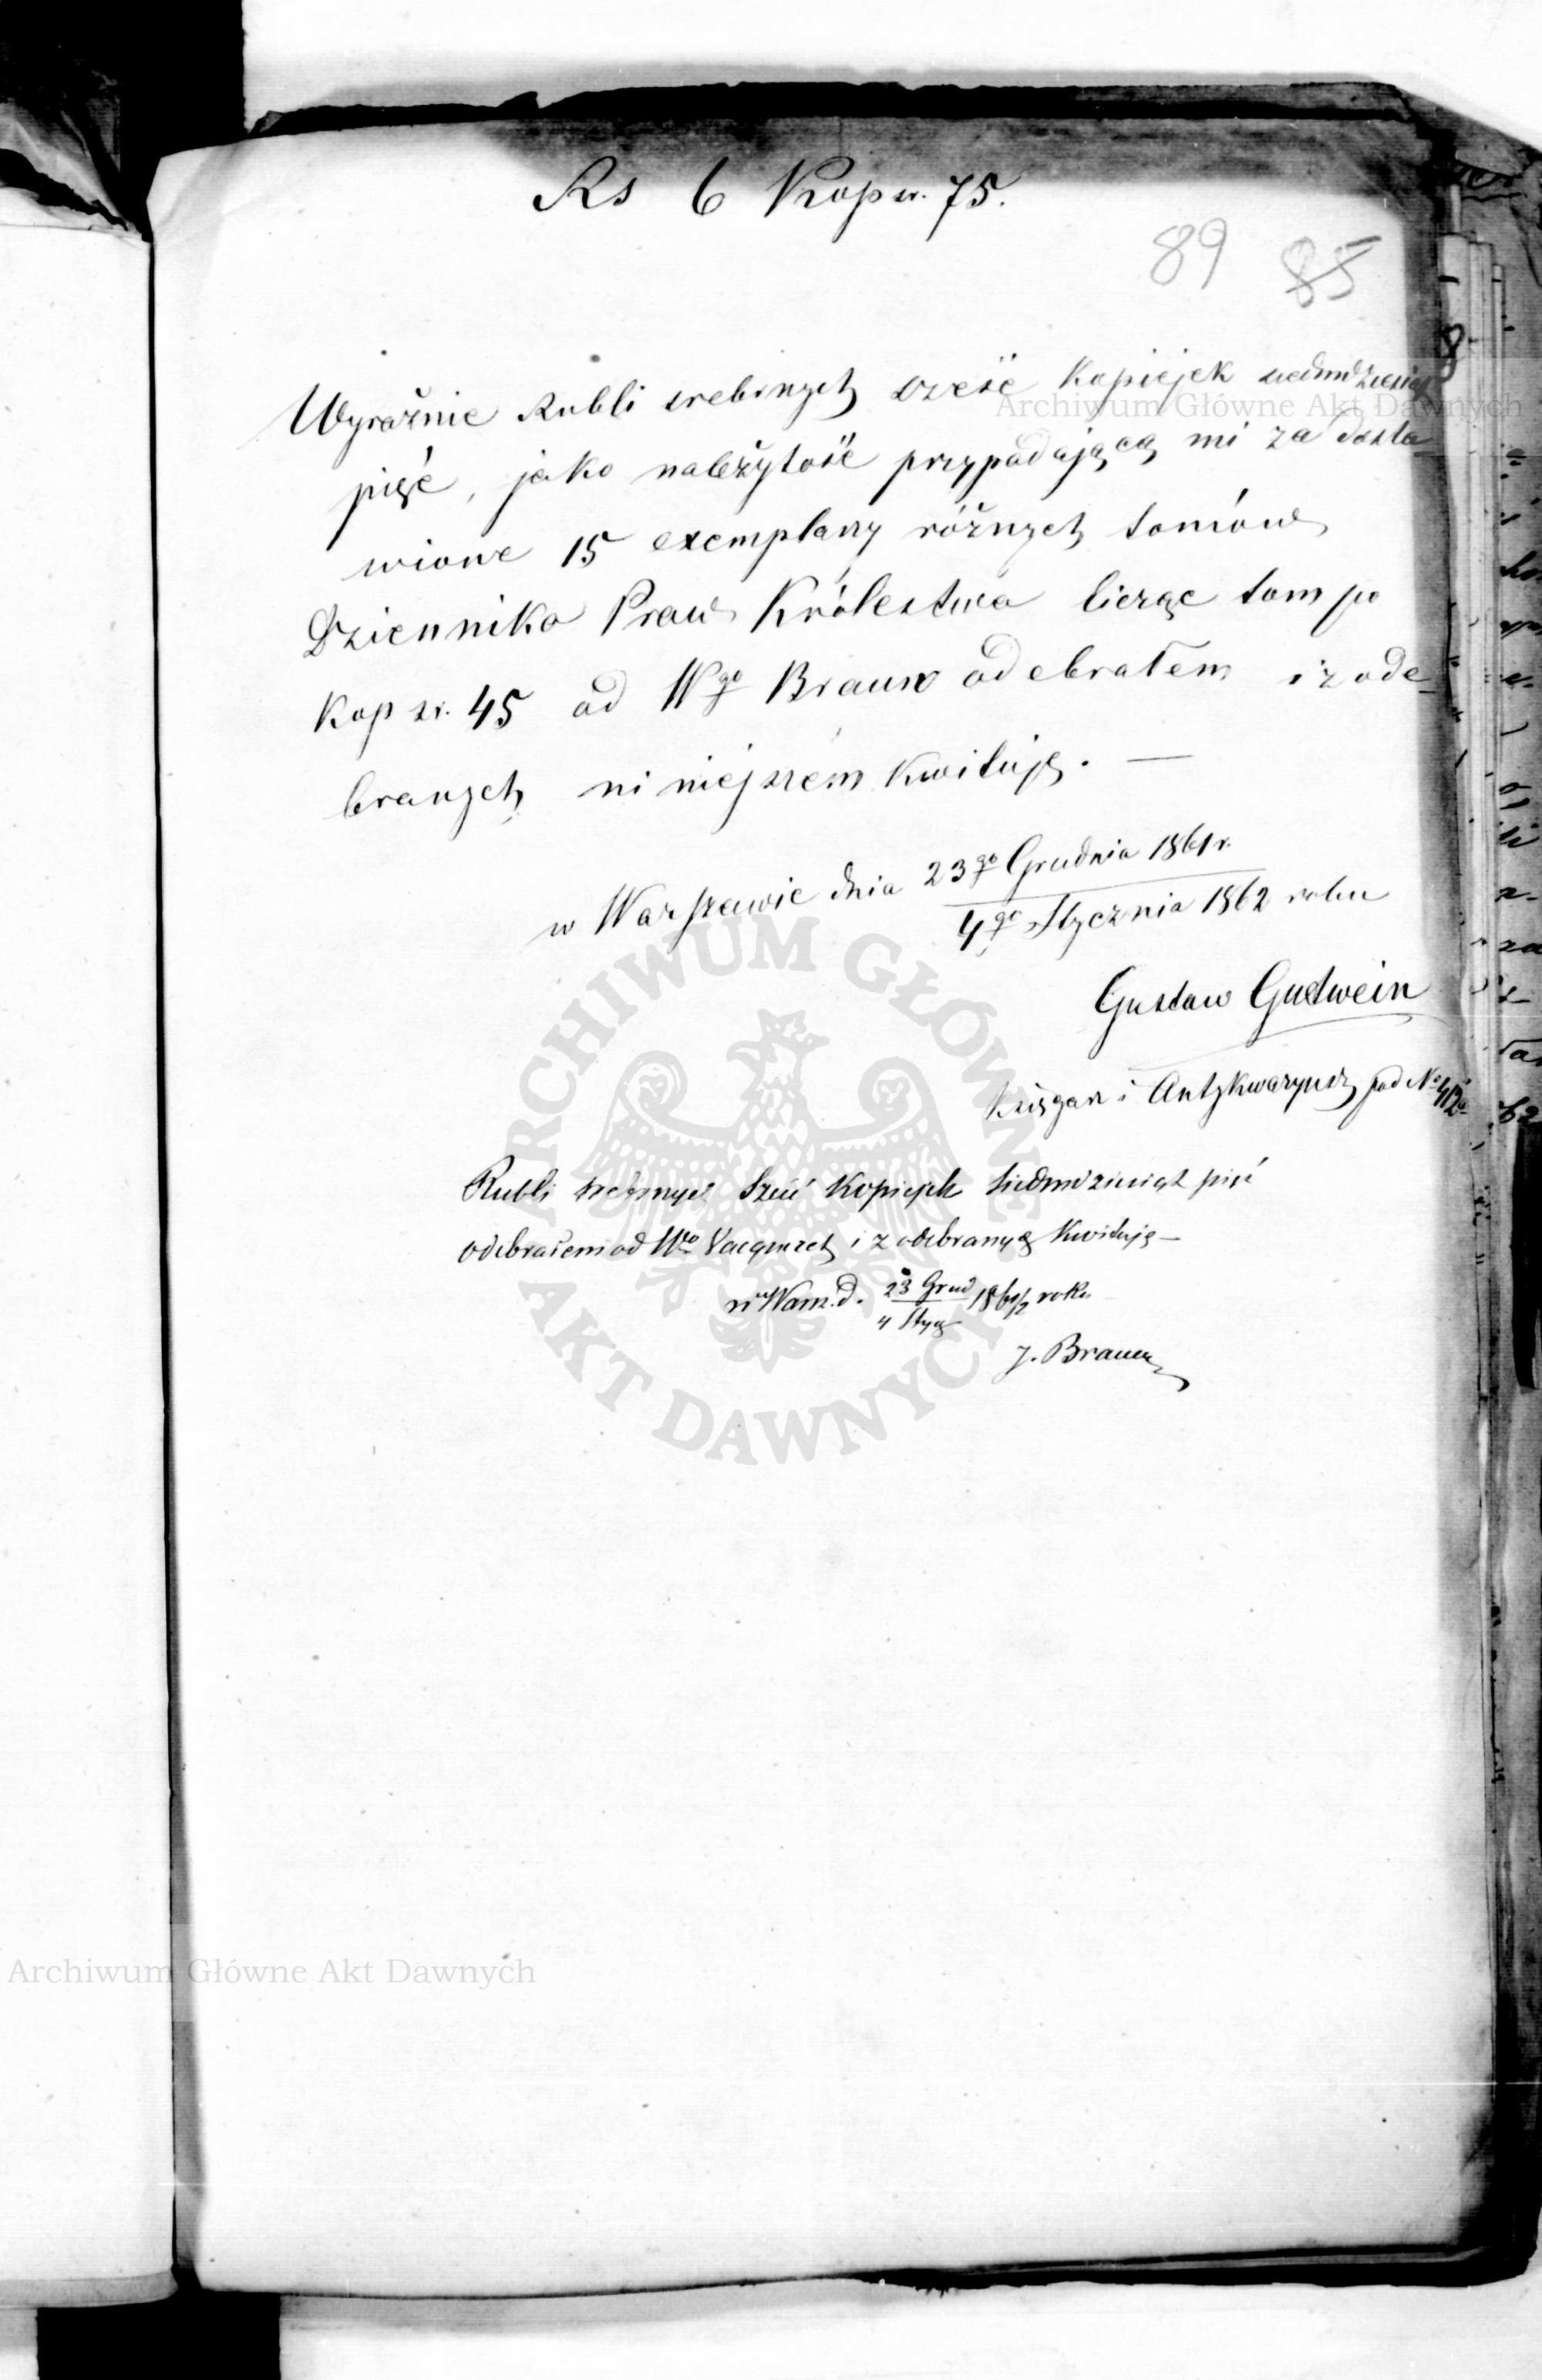 Rs 6 Kop sr. 75.
89 85
Wyraźnie Rubli srebrnych sześć Kopiejek siedmdziesiąt
pięć, jako należytość przypadającą mi za dosta-
wione 15 exemplarzy różnych tomów
Dziennika Praw Królestwa licząc tom po
Kop sr. 45 od Wgo Brauw odebrałem i z ode-
branych niniejszém kwituję. —
w Warszawie dnia 23go Grudnia 1861 r.
4go Stycznia 1862 roku
Gustaw Gudwein
Księgarz i Antykwaryusz pod No
Rubli srebrnych Sześć Kopiejek siedmdziesiąt pięć
odebrałem od Wo i z odebranych Kwituję —
w Warsz. d. 23 Grud 1861/2 roku
4 Stycz
J. Brauer
Archiwum Główne Akt Dawnych
ARCHIWUM GŁÓWNE
AKT DAWNYCH
Archiwum Główne Akt Dawnych